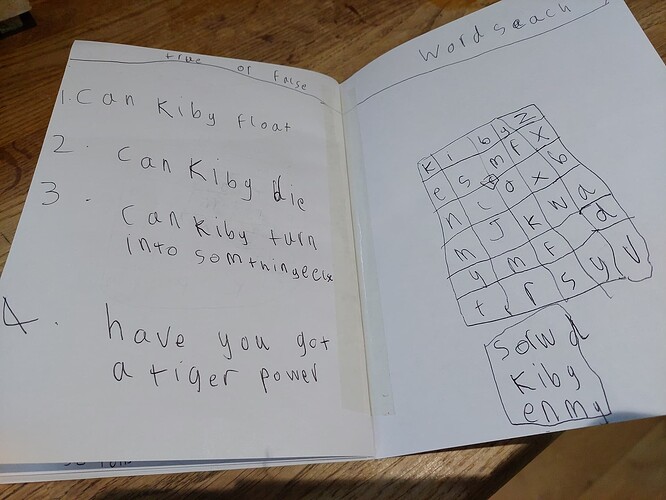 true or false
1. Can Kiby float
2. can Kiby die
3. can Kiby turn
into somthingeelx
4. have you got
a tiger power
Wordseach
K i b y Z
e s m f X
n i o x b
m J k w a
y m f d
t r s y V
sorw d
Kiby
enmy